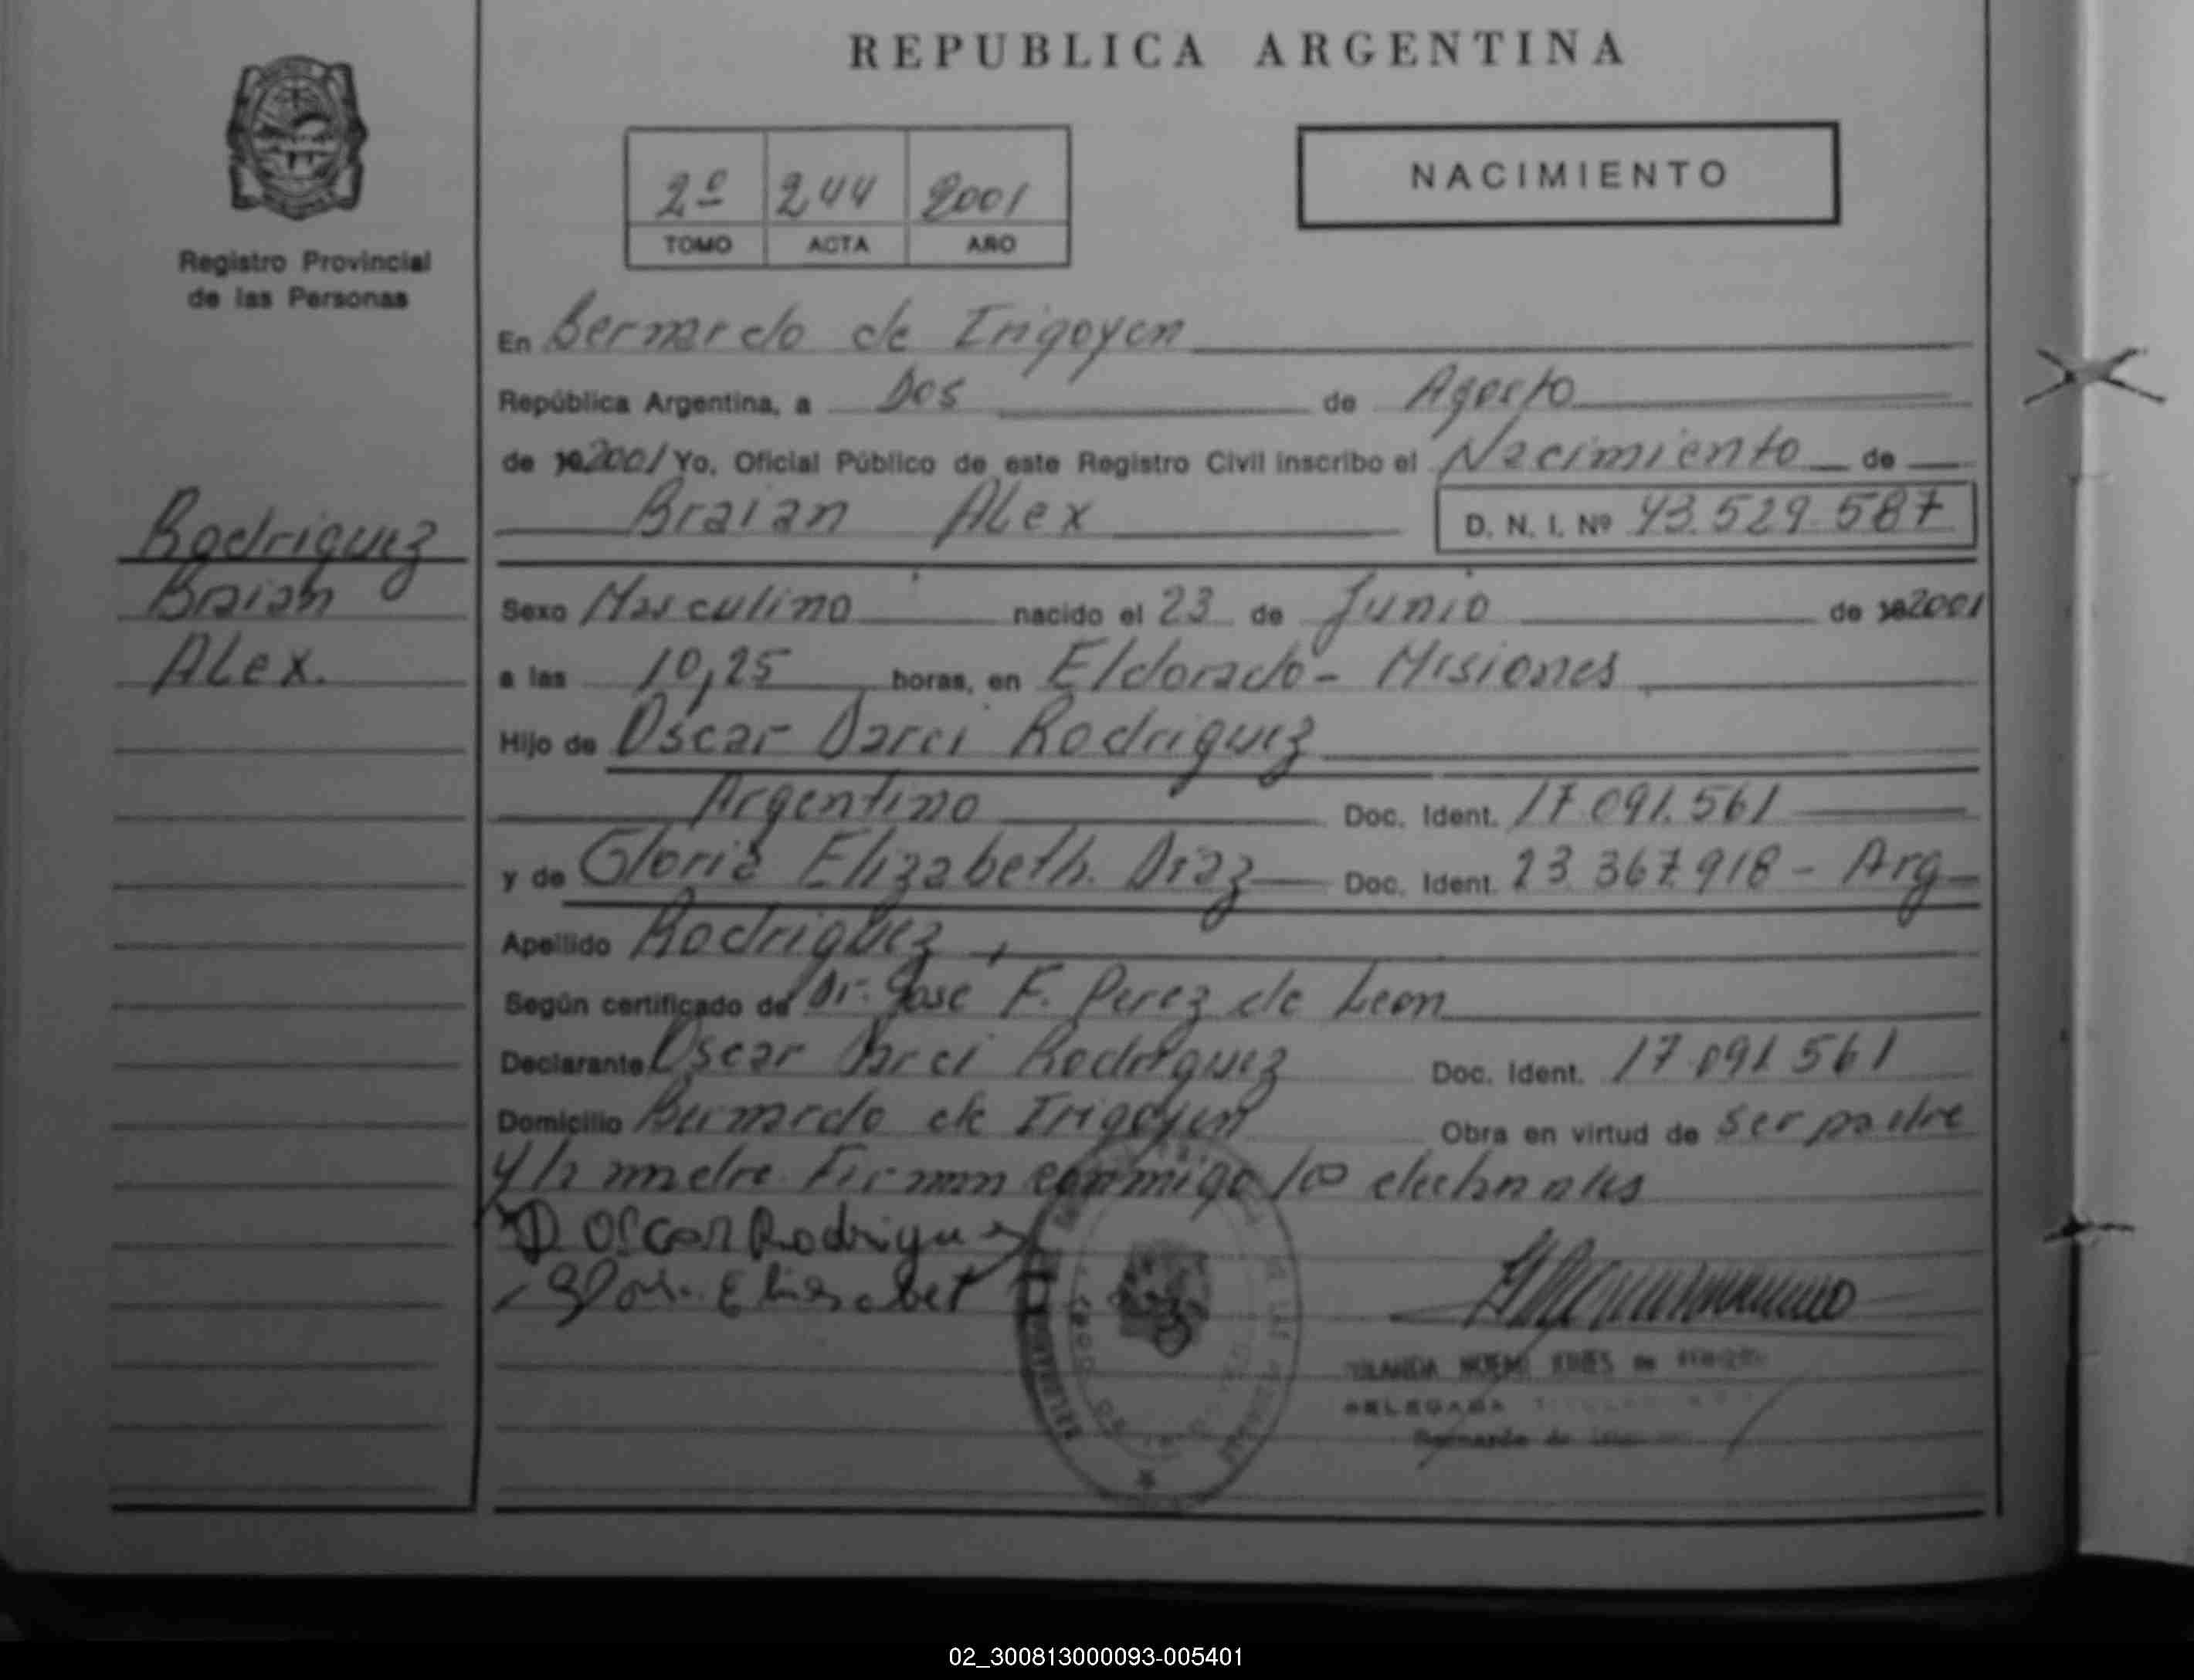 REPUBLICA ARGENTINA
2º 244 2001
TOMO ACTA AÑO
NACIMIENTO
Registro Provincial
de las Personas
Rodriguez
Braian
Alex.
En Bernardo de Irigoyen
República Argentina, a Dos de Agosto
de 19 2001 Yo, Oficial Público de este Registro Civil inscribo el Nacimiento de
Braian Alex D. N. I. Nº 43.529.587
Sexo Masculino nacido el 23 de Junio de 19 2001
a las 10,25 horas, en Eldorado - Misiones
Hijo de Oscar Darci Rodriguez
Argentino Doc. Ident. 17.091.561
y de Gloria Elizabeth. Diaz Doc. Ident. 23.367.918 - Arg
Apellido Rodriguez
Según certificado de Dr. Jose F. Perez de Leon
Declarante Oscar Darci Rodriguez Doc. Ident. 17.091.561
Domicilio Bernardo de Irigoyen Obra en virtud de ser padre
y la madre Firman conmigo los
Oscar Rodriguez
NOEMI
DELEGADA
Bernardo de
02_300813000093-005401